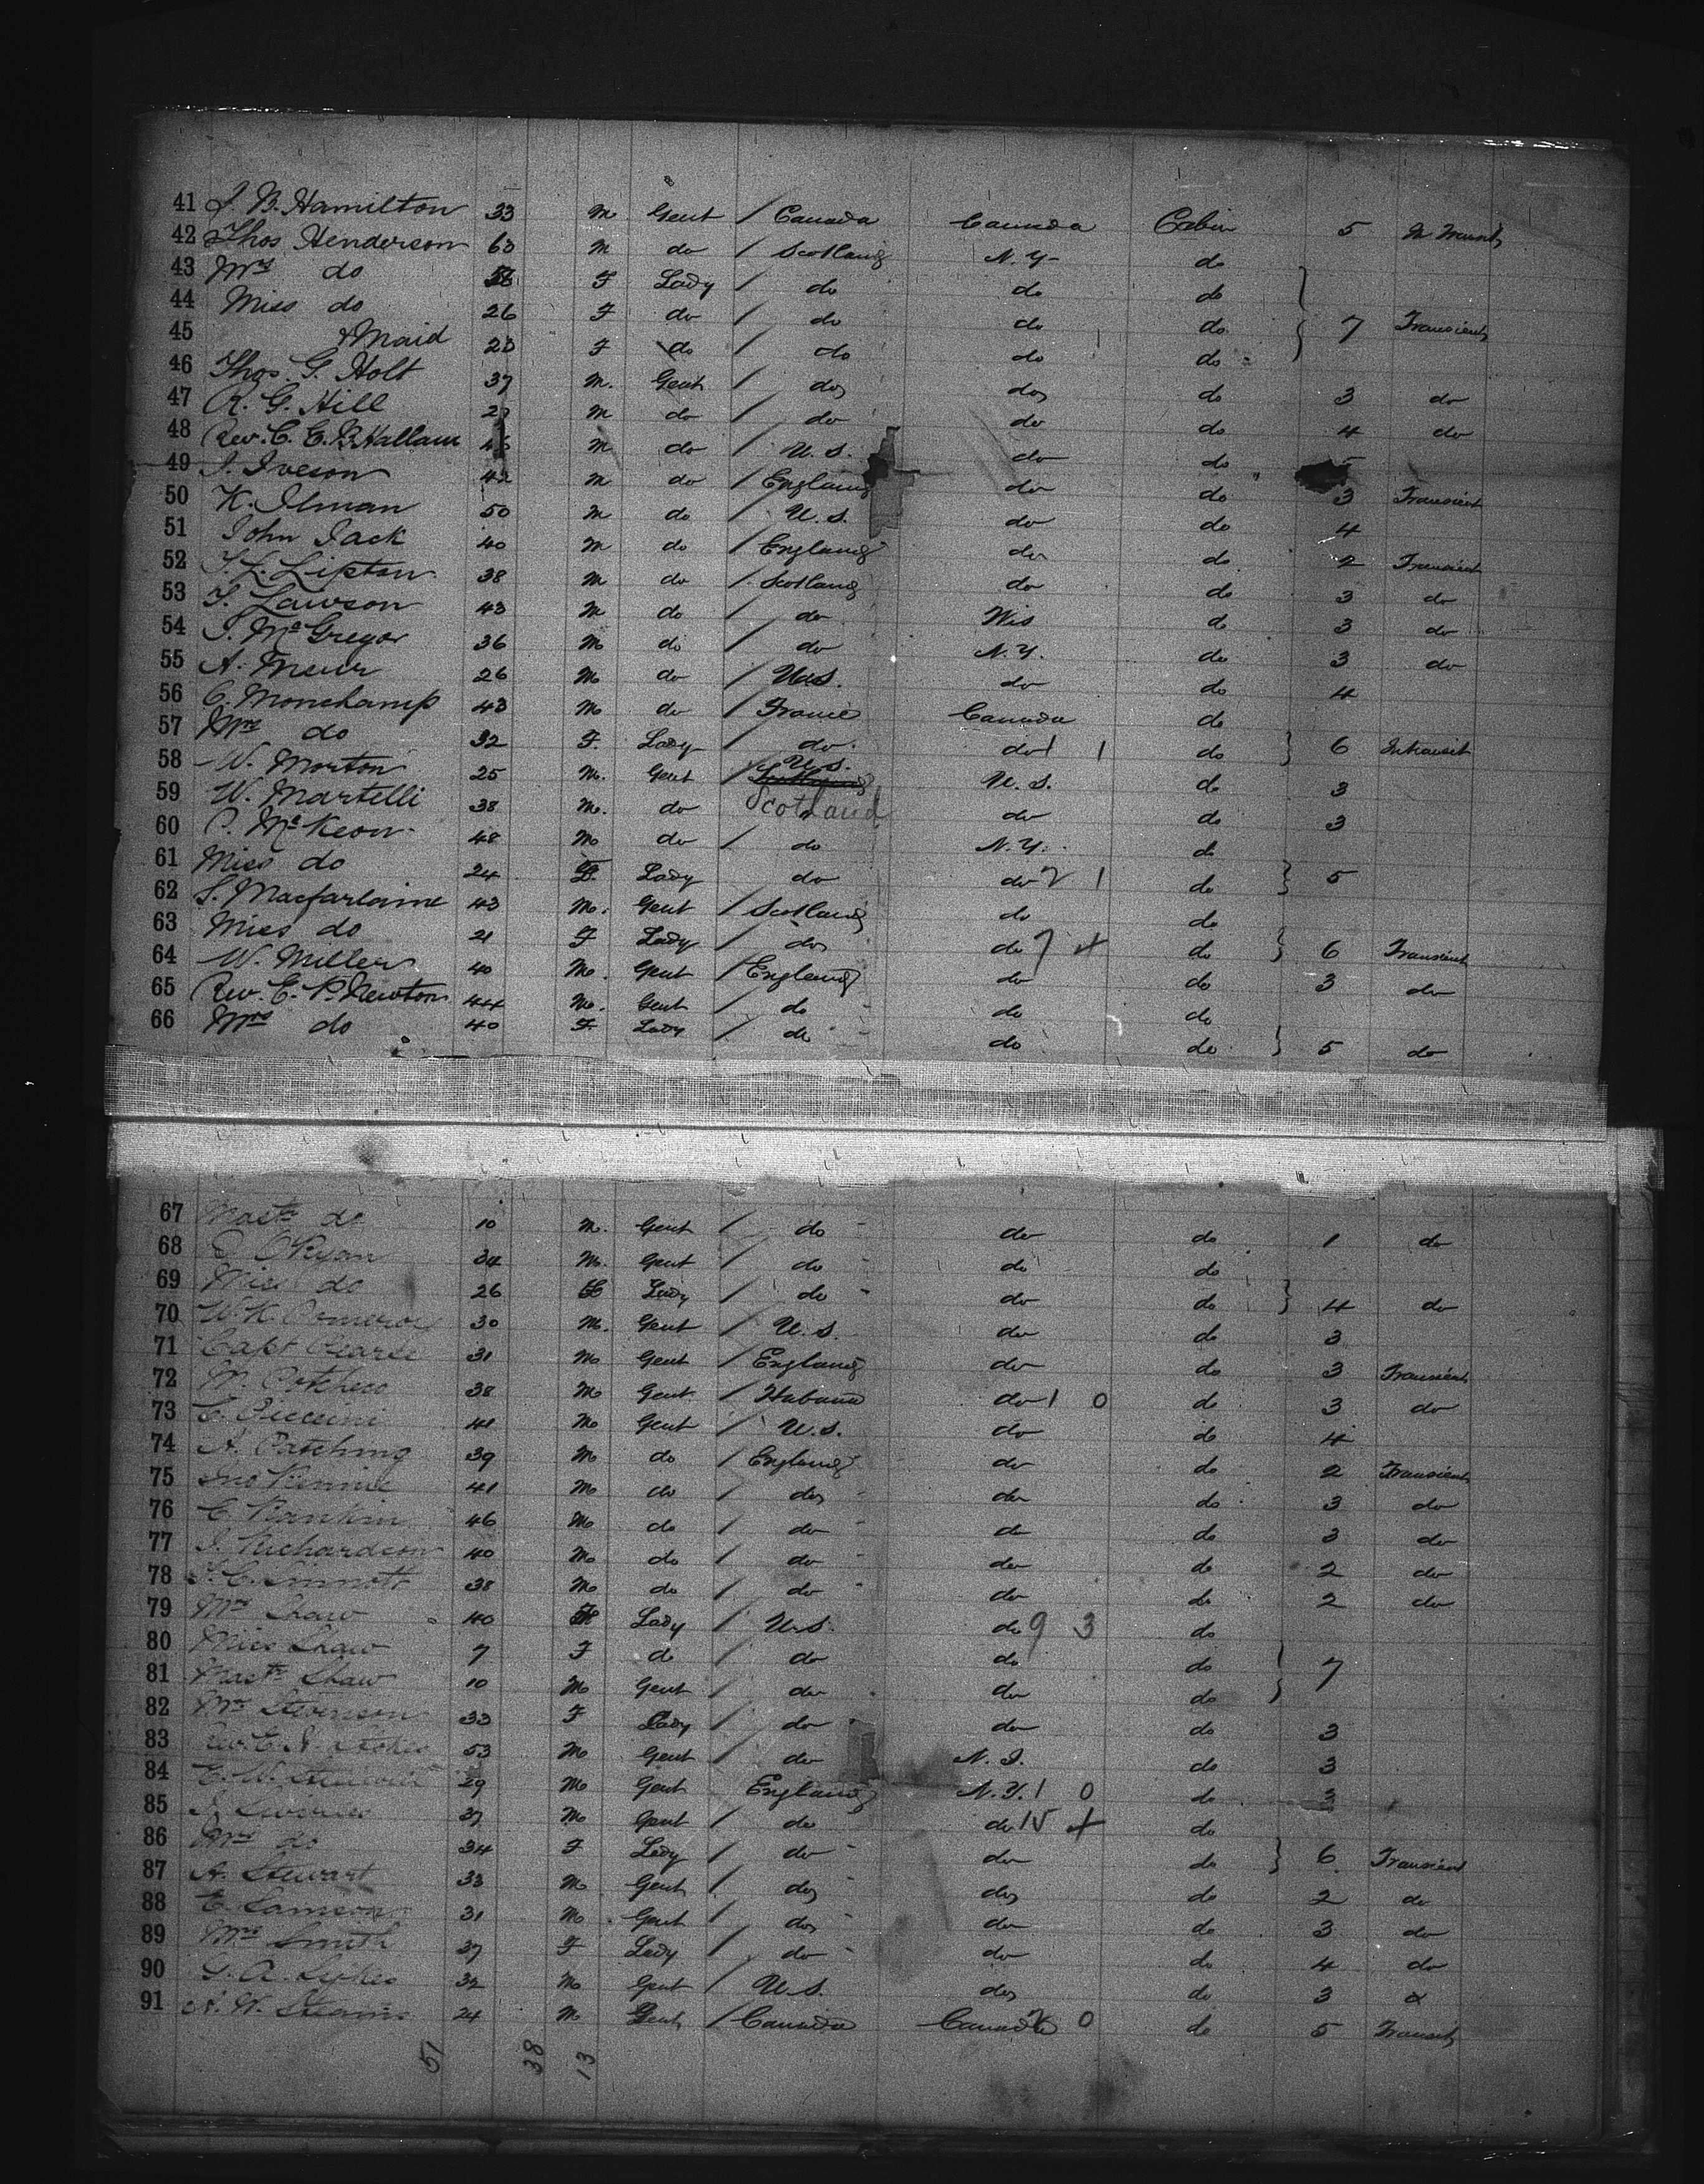 41 J. B. Hamilton 33 M Gent / Canada Canada Cabin 5 In Transit
42 Thos Henderson 60 M do / Scotland N.Y. do
43 Mrs do F Lady / do do do
44 Miss do 26 F do / do do do } 7 Transient
45 & Maid 23 F do / do do do
46 Thos. G. Holt 37 M. Gent / do do do 3 do
47 R. G. Hill M do / do do do 4 do
48 Rev. C. E. B. Hallam M do / U.S. do do 5
49 J. Iveson 42 M do / England do do 3 Transient
50 K. Ilman 50 M do / U.S. do do 4
51 John Jack 40 M do / England do do 2 Transient
52 Lipton 38 M do / Scotland do do 3 do
53 Lawson 43 M do / do Wis do 3 do
54 McGregor 36 M do / do N.Y. do 3 do
55 A. 26 M do / U.S. do do 4
56 C. Monchamp 43 M do / France Canada do
57 Mrs do 32 F. Lady / do do 1 1 do } 6 Intransit
58 W. Morton 25 M. Gent / U.S. U.S. do 3
59 W. Martelli 38 M. do Scotland do do 3
60 P. McKeon 48 M do / do N.Y. do
61 Miss do 24 F. Lady do do 2 1 do } 5
62 S. Macfarlaine 43 M. Gent / Scotland do do
63 Miss do 21 F Lady / do do 7 4 do } 6 Transient
64 W. Miller 40 M. Gent / England do do 3 do
65 Rev. E. P. Newton 44 M. Gent / do do do
66 Mrs do 40 F. Lady / do do do } 5 do
67 Mastr do 10 M. Gent / do do do 1 do
68 O'Ryan 34 M. Gent / do do do
69 Miss do 26 Lady / do do do } 4 do
70 W. K. Pomeroy 30 M. Gent / U.S. do do 3
71 Capt Pearse 31 M Gent / England do do 3 Transient
72 38 M Gent / Habana do 1 0 do 3 do
73 C. Piccini 41 M Gent / U.S. do do 4
74 A. Patching 39 M do / England do do 2 Transient
75 Jno Rennie 41 M do / do do do 3 do
76 C. Rankin 46 M do / do do do 3 do
77 J. Richardson 40 M do / do do do 2 do
78 38 M do / do do do 2 do
79 Mrs Shaw 40 F. Lady / U.S. do 9 3 do
80 Miss Shaw 7 F do / do do do } 7
81 Mastr Shaw 10 M Gent / do do do
82 Mrs Stevenson 33 F Lady / do do do 3
83 Rev. Stokes 53 M Gent / do N.J. do 3
84 E. W. 29 M Gent England N.Y. 1 0 do 3
85 37 M Gent / do do 15 4 do
86 Mrs do 34 F Lady / do do do } 6 Transient
87 A. Stewart 33 M Gent / do do do 2 do
88 E. Samson 31 M Gent / do do do 3 do
89 Mrs Smith 37 F Lady / do do do 4 do
90 Sykes 32 M Gent / U.S. do do 3
91 A. W. Stearns 24 M Gent / Canada Canada 2 0 do 5 Transit
51 38 13